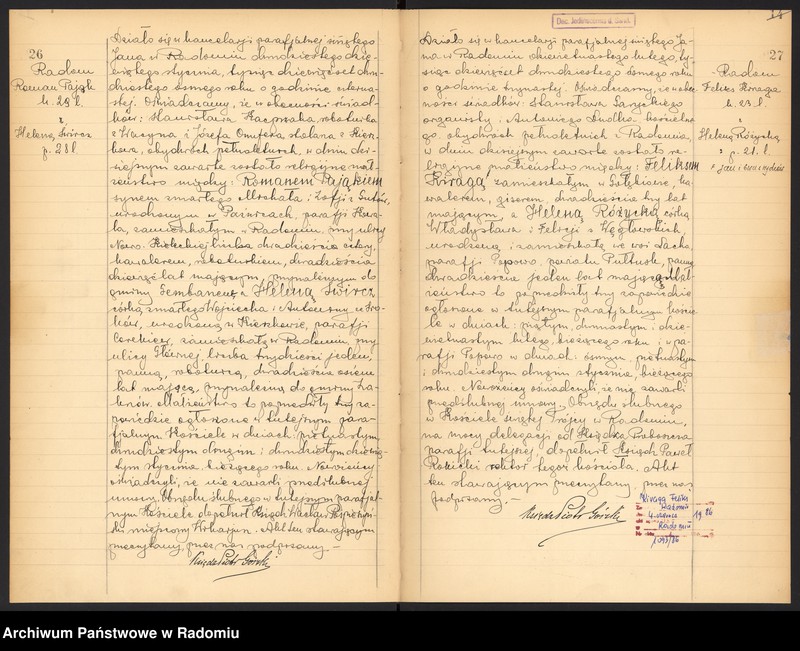 26
Radom
Roman Pająk
k. 29 l.
z
Helena Śwircz
p. 28 l.
Działo się w kancelarji parafjalnej świętego
Jana w Radomiu dwudziestego dzie-
wiątego stycznia, tysiąc dziewięćset dwu-
dziestego ósmego roku o godzinie czterna-
stej. Oświadczamy, że w obecności świad-
ków: Stanisława Kaczmaka, robotnika
z i Józefa stolarza z
obydwóch pełnoletnich, w dniu dzi-
siejszym zawarte zostało religijne mał-
żeństwo między: Romanem Pająkiem
synem zmarłego Michała i Zofji z
urodzonym w parafji
zamieszkałym w Radomiu przy ulicy
Nowo- liczba dwadzieścia cztery,
kawalerem, robotnikiem, dwadzieścia
dziewięć lat mającym, przynależnym do
gminy a Heleną Śwircz
córką zmarłego Wojciecha i Antoniny z
urodzoną w parafji
zamieszkałą w Radomiu przy
ulicy Głównej liczba trzydzieści jeden,
panną, robotnicą, dwadzieścia osiem
lat mającą, przynależną do gminy
Małżeństwo to poprzedziły trzy za-
powiedzie ogłoszone w tutejszym para-
fjalnym Kościele w dniach: piętnastym,
dwudziestym drugim i dwudziestym dziewią-
tym stycznia bieżącego roku. Nowożeńcy
oświadczyli, że nie zawarli przedślubnej
umowy. Obrzędu ślubnego w tutejszym parafjal-
nym Kościele dopełnił Ksiądz Wacław
miejscowy Wikarjusz. Akt ten stawającym
przeczytany, przez nas podpisany. —
Ksiądz Piotr Górski
27
Radom
Feliks Kwaga
k. 23 l.
z
Helena Różycka
p. 21. l.
Działo się w kancelarji parafjalnej świętego Ja-
na w Radomiu dziewiętnastego lutego, ty-
siąc dziewięćset dwudziestego ósmego roku
o godzinie trzynastej. Oświadczamy, że w obec-
ności świadków: Stanisława
organisty i Antoniego Dudka, kościelne-
go, obydwóch pełnoletnich z Radomia,
w dniu dzisiejszym zawarte zostało re-
ligijne małżeństwo między: Feliksem
Kwagą, zamieszkałym w ka-
walerem, giserem, dwadzieścia trzy lat
mającym, a Heleną Różycką córką
Władysława i Felicji z Węgłowskich,
urodzoną i zamieszkałą we wsi
parafji Popowo, powiatu Pułtusk, panną,
dwadzieścia jeden lat mającą. Mał-
żeństwo to poprzedziły trzy zapowiedzie
ogłoszone w tutejszym parafjalnym koście-
le w dniach: piątym, dwunastym i dzie-
więtnastym lutego bieżącego roku i w pa-
rafji Popowo w dniach: ósmym, piętnastym
i dwudziestym drugim stycznia, bieżącego
roku. Nowożeńcy oświadczyli, że nie zawarli
przedślubnej umowy. Obrzędu ślubnego
w Kościele świętej Trójcy w Radomiu,
na mocy delegacji od Księdza Proboszcza
parafji tutejszej, dopełnił Ksiądz Paweł
rektor tegoż kościoła. Akt
ten stawającym przeczytany, przez nas
podpisany. —
Ksiądz Piotr Górski
Kwaga Feliks
4. czerwca 1986
Radomiu
1093/86
Archiwum Państwowe w Radomiu